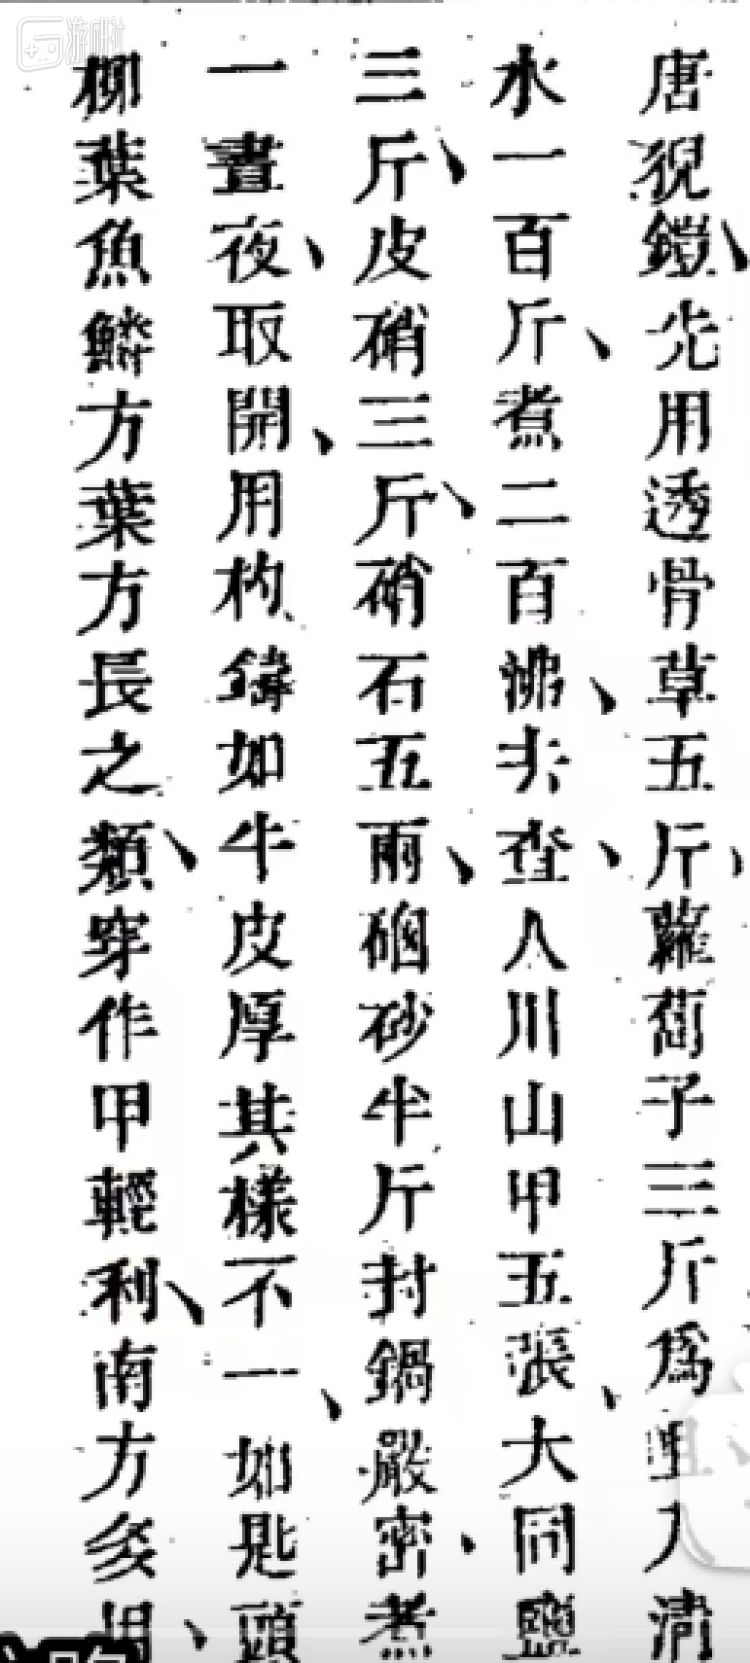 唐猊鎧、先用透骨草五斤、蘿蔔子三斤爲入清
水一百斤、煮二百沸、去查、入川山甲五張、大同鹽
三斤、皮硝三斤、硝石五兩、硇砂半斤封鍋嚴密、煮
一晝夜、取開、用杓鑄如牛皮厚其樣不一、如匙頭
柳葉魚鱗方葉方長之類、穿作甲輕利、南方多用、
游研社